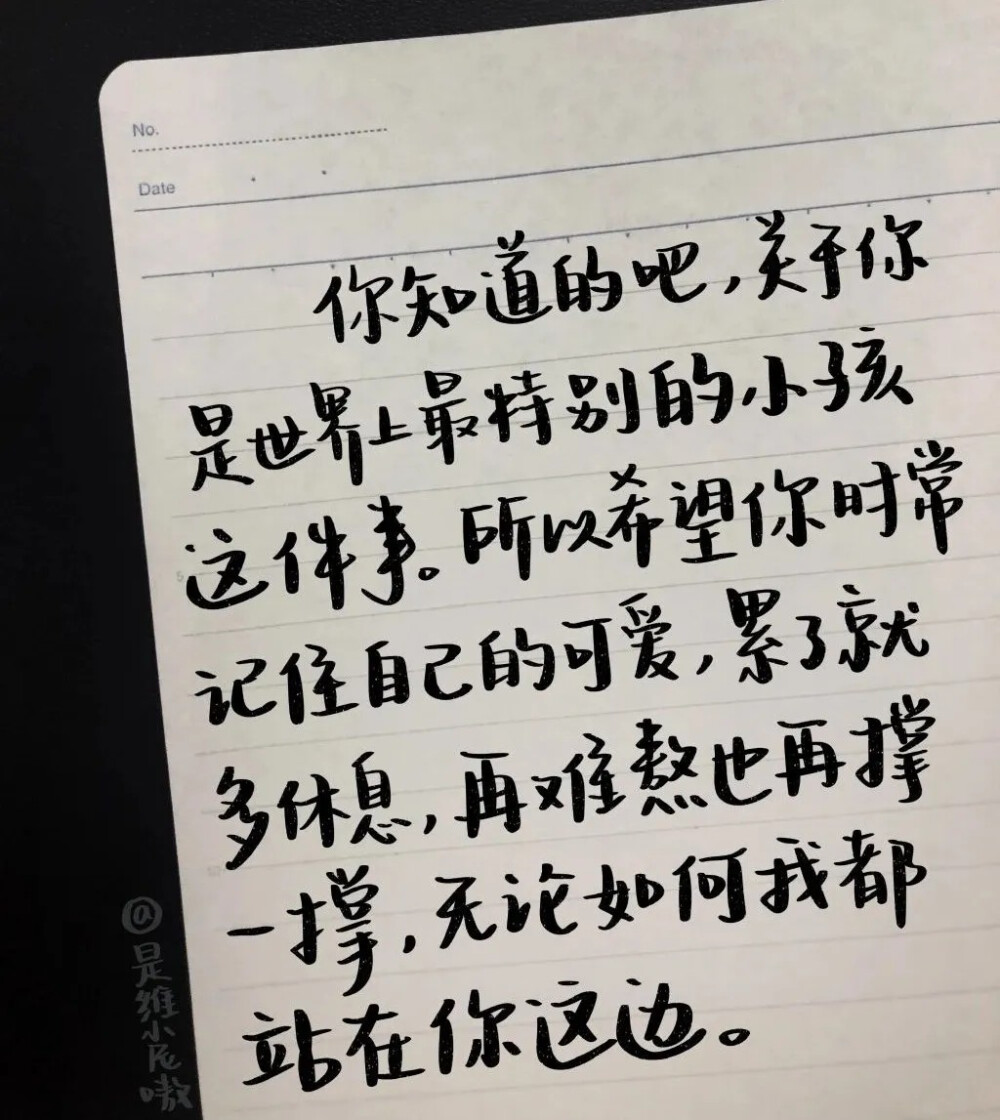 No.
Date
你知道的吧,关于你
是世界上最特别的小孩
这件事。所以希望你时常
记住自己的可爱,累了就
多休息,再难熬也再撑
一撑,无论如何我都
站在你这边。
@是维小尼嗷